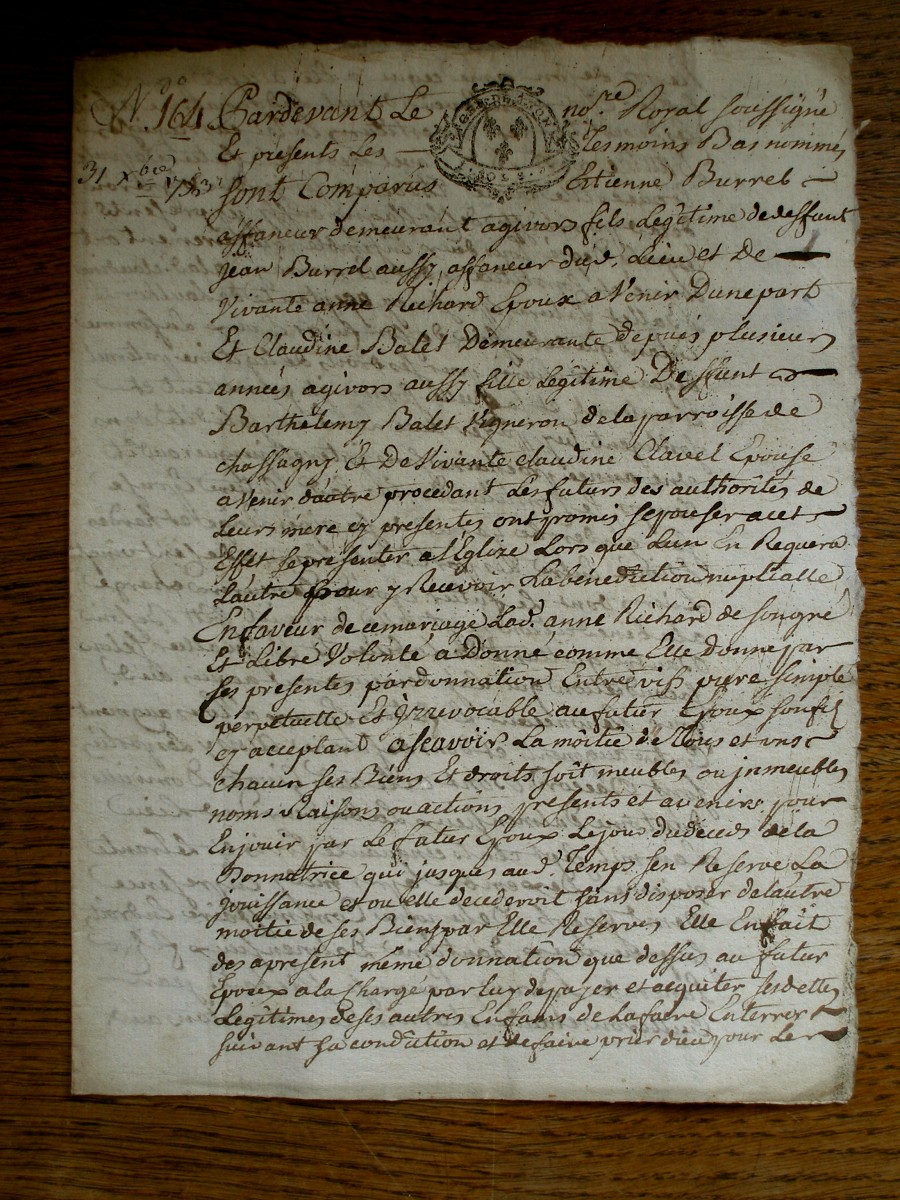 N.º 164 Pardevant Le no.re Royal soussigné
Et presents Les Tesmoins Bas nommés
31 xbre
sont Comparus Estienne Burrel
affaneur demeurant agivors fils Legitime de deffunt
jean Burrel aussy affaneur dud. Lieu et De
Vivante anne Richard Epoux a Venir Dune part
Et Claudine Balet Demeurante depuis plusieurs
années agivors aussy fille Legitime Deffunt
Barthelemy Balet Vigneron delaparroisse de
chassagny Et De Vivante claudine Clavel Epouse
avenir dautre procedant Lesfuturs des authorités de
Leurs mere cy presentes ont promis sepouser acet
Effet sepresenter a lEglize Lors que Lun En Requera
Lautre pour y Recevoir Labénédiction nuptialle
Enfaveur decemariage Lad. anne Richard de songré
Et Libre Volonté a Donné comme Elle donne par
ses presentes pardonnation Entre vifs pure simple
perpetuelle Et yrrevocable aufutur Epoux sonfils
cy acceptant ascavoir La moitié de Tous et uns
chacun ses Biens Et droits soit meubles ou jmmeubles
noms Raisons ou actions presents et avenirs pour
Enjouir par Le futur Epoux Lejour dudeces de la
Donnatrice qui jusques aud. Temps sen Reserve La
jouissance et ou elle decederoit sans disposer delautre
moitié de ses Biens par Elle Reservés Elle En fait
des apresent même donnation que dessus au futur
Epoux a la Charge par luy depayer et acquiter ses dettes
Legitimes deses autres Enfans de Lafaire Enterrer
suivant sa condition et defaire prier dieu pour Le